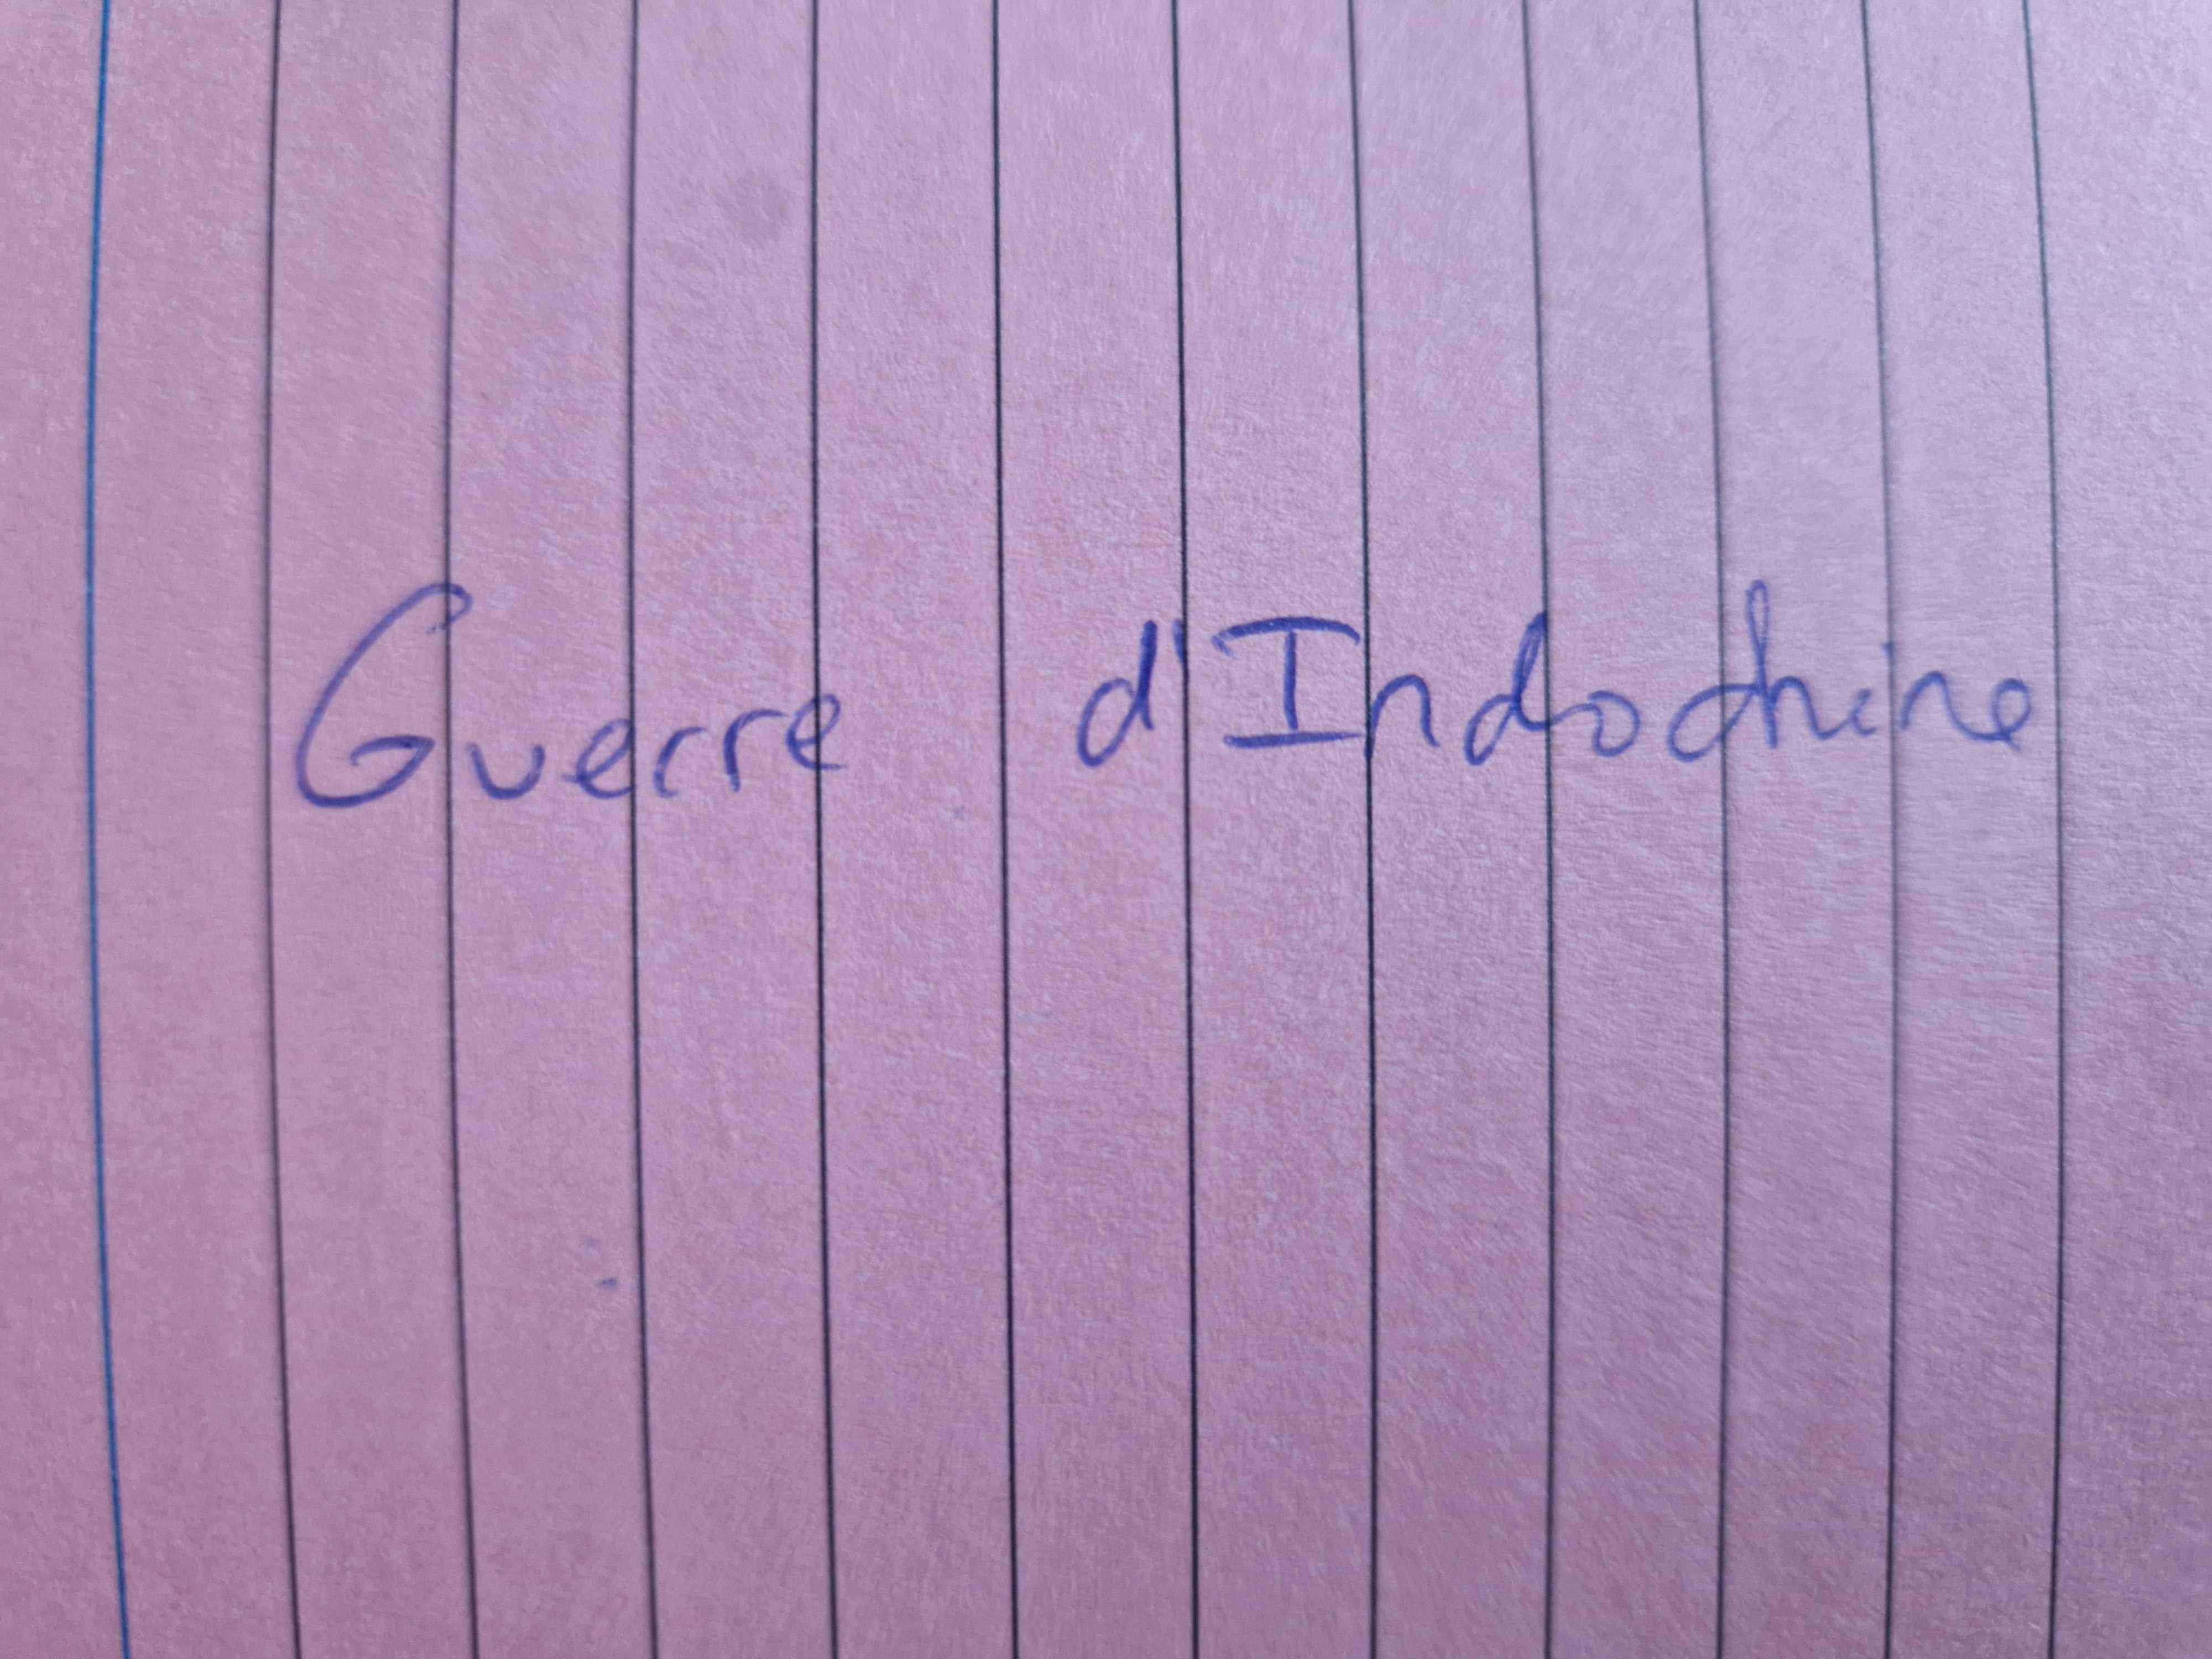 Guerre d'Indochine